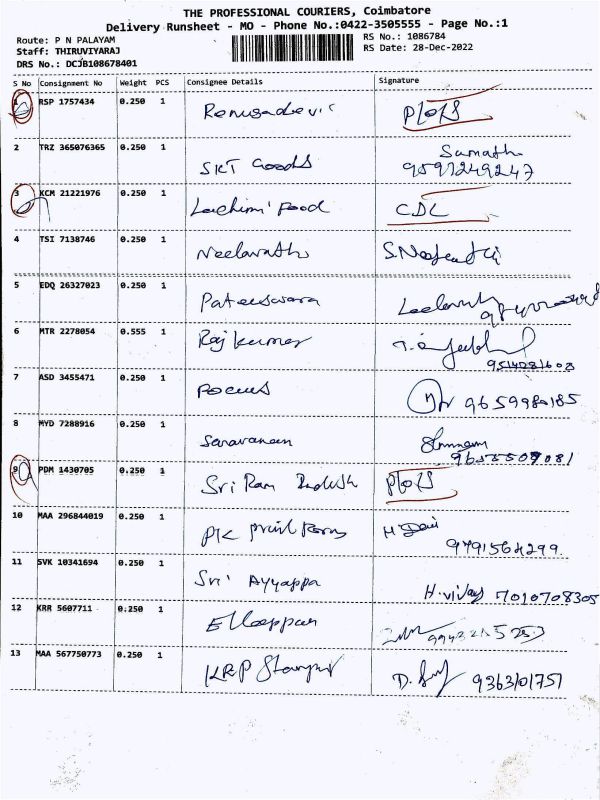 THE PROFESSIONAL COURIERS, Coimbatore
Delivery Runsheet - MO - Phone No.:0422-3505555 - Page No.:1
Route: P N PALAYAM
RS No.: 1086784
Staff: THIRUVIYARAJ
RS Date: 28-Dec-2022
DRS No.: DCJB108678401
S No Consignment No Weight PCS Consignee Details Signature
1 RSP 1757434 0.250 1 Renugadevi
2 TRZ 365076365 0.250 1 SKT Goods Sumathi
9597249247
3 KCM 21221976 0.250 1 Lachimi Food CDL
4 TSI 7138746 0.250 1 Neelavathi
5 EDQ 26327023 0.250 1 Pateeswara
6 MTR 2278054 0.555 1 Raj kumar
7 ASD 3455471 0.250 1 Focus 9659980185
8 MYD 7288916 0.250 1 Saravanan
9 PDM 1430705 0.250 1 Sri Ram
10 MAA 296844019 0.250 1 PK Print H Devi
9791564299.
11 SVK 10341694 0.250 1 Sri Ayyappa H.vijay 7010708305
12 KRR 5607711 0.250 1 Ellappan
13 MAA 567750773 0.250 1 KRP 9363101751